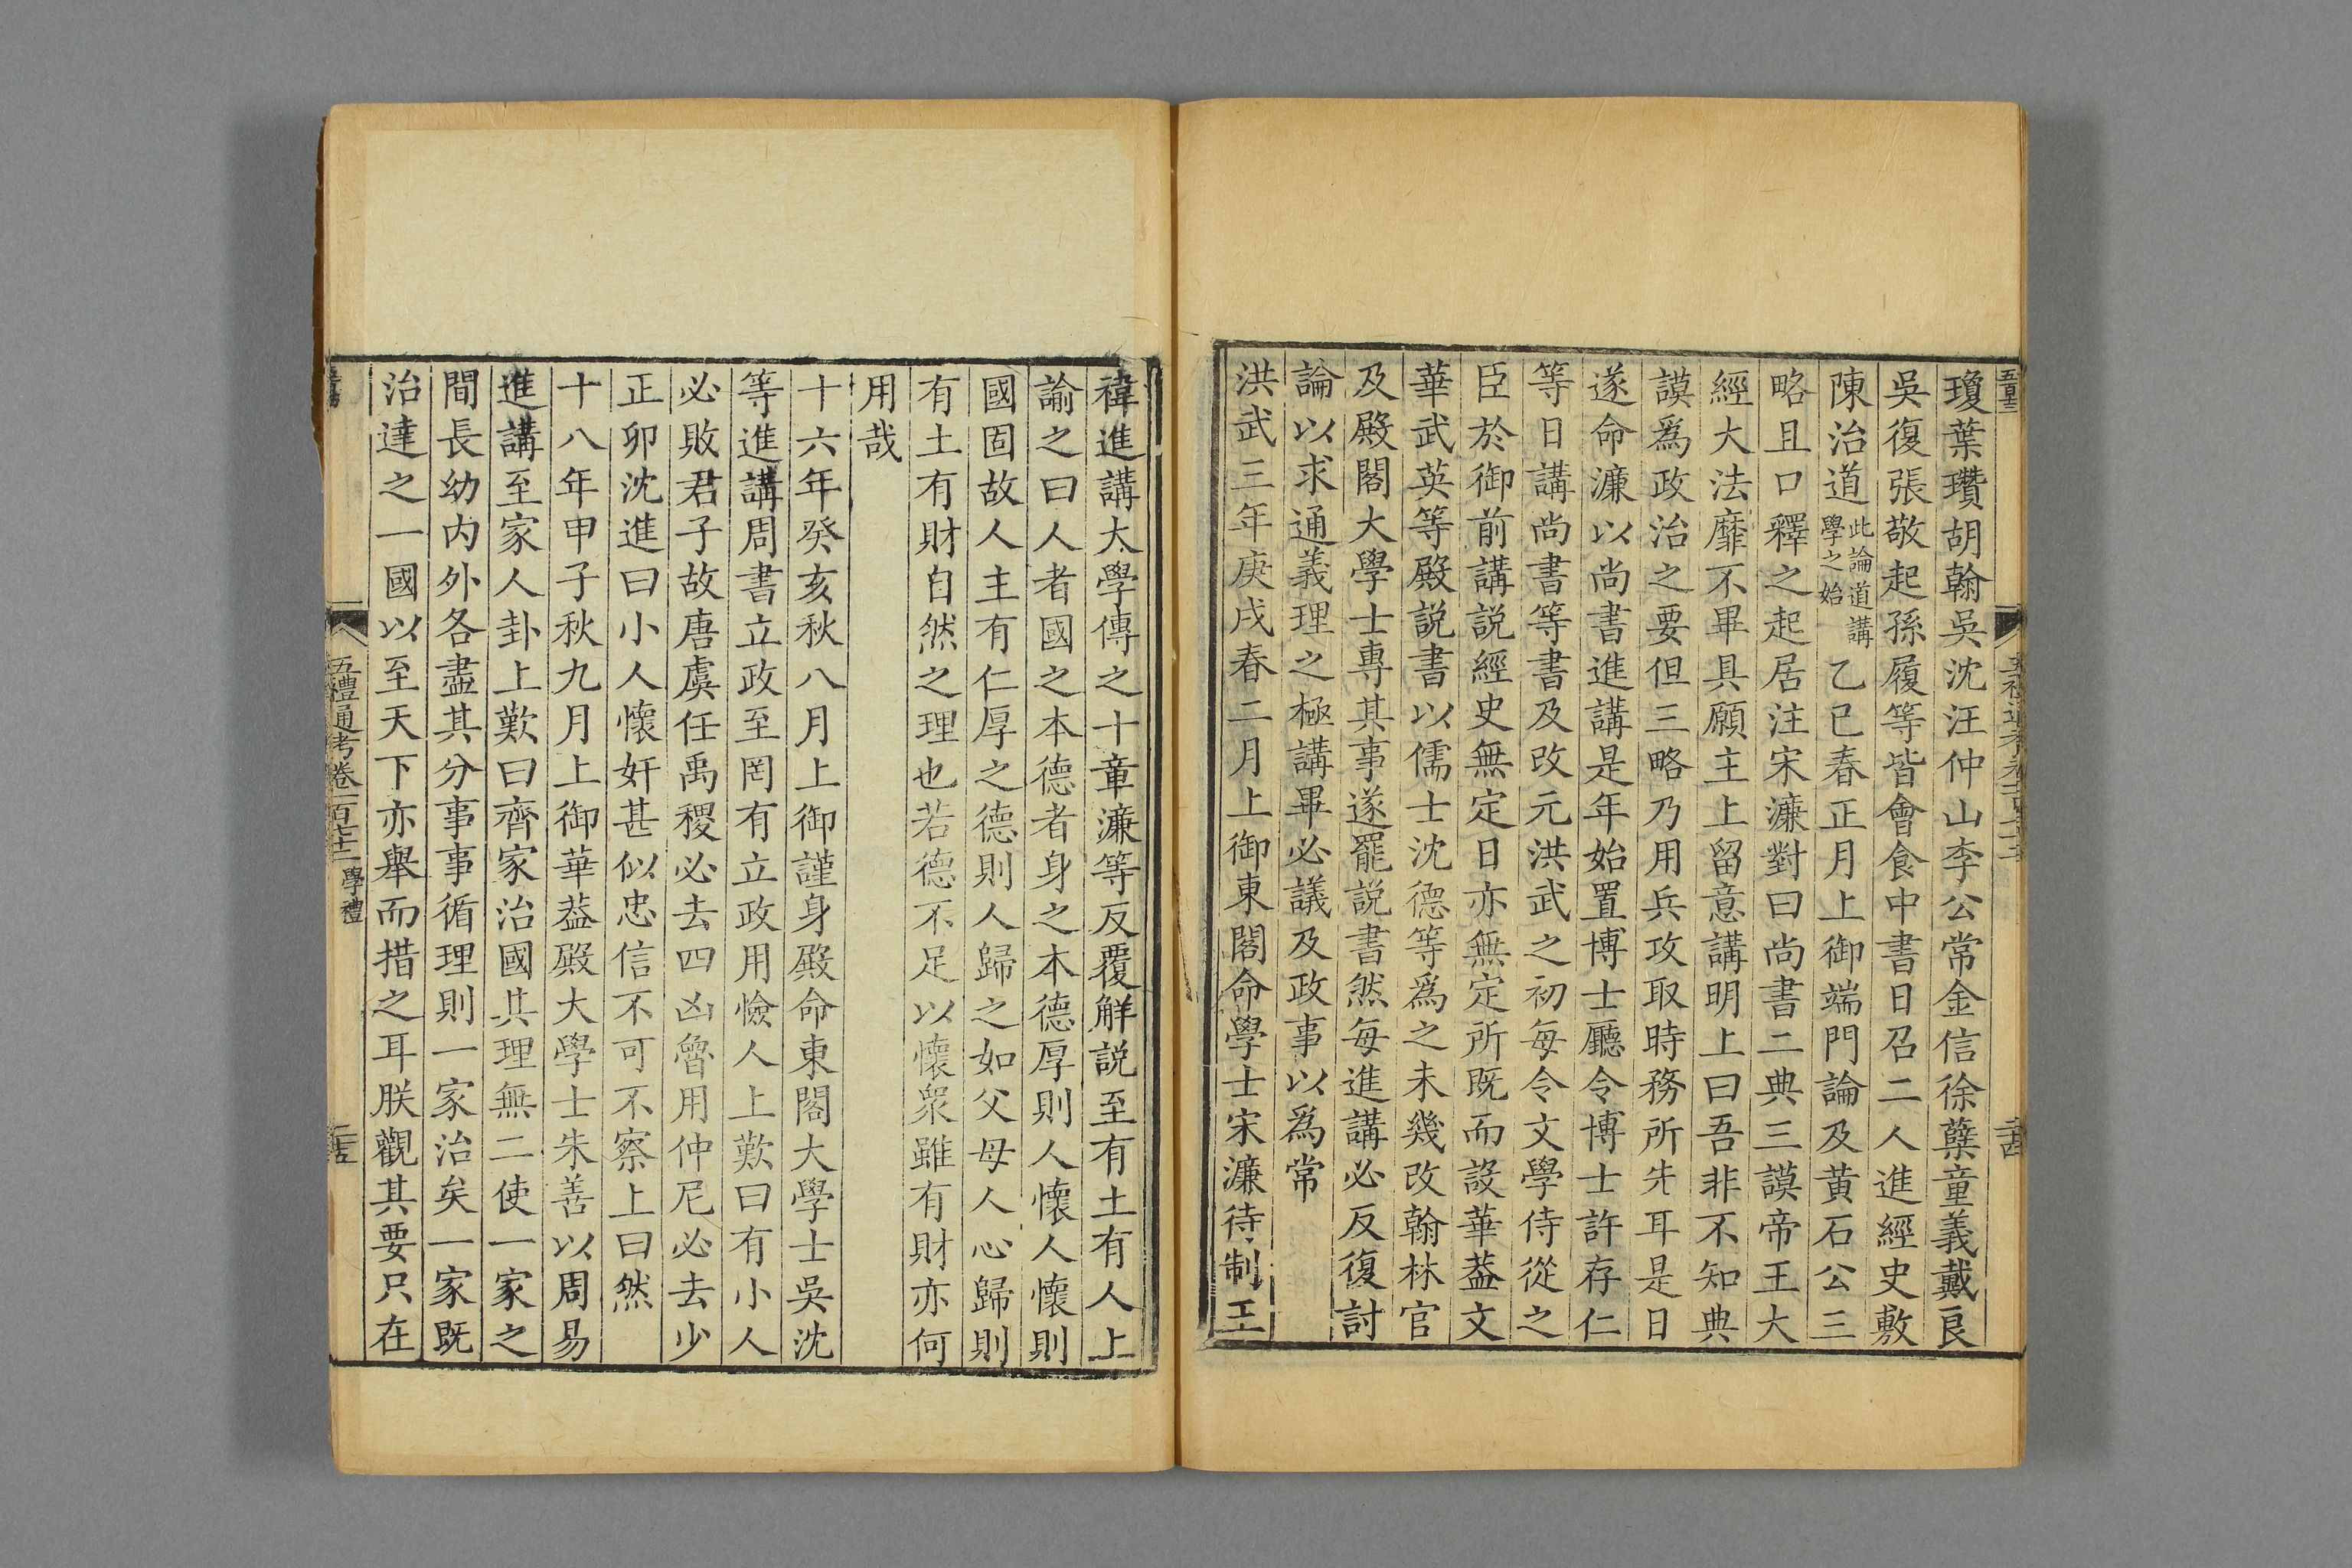 瓊葉瓚胡翰吳沈汪仲山李公常金信徐孳童義戴良
吳復張敬起孫履等皆會食中書日召二人進經史敷
陳治道此論道講學之始乙巳春正月上御端門論及黃石公三
略且口釋之起居注宋濂對曰尚書二典三謨帝王大
經大法靡不畢具願主上留意講明上曰吾非不知典
謨爲政治之要但三略乃用兵攻取時務所先耳是日
遂命濂以尚書進講是年始置博士廳令博士許存仁
等日講尚書等書及改元洪武之初每令文學侍從之
臣於御前講説經史無定日亦無定所既而設華葢文
華武英等殿説書以儒士沈德等爲之未幾改翰林官
及殿閣大學士專其事遂罷説書然每進講必反復討
論以求通義理之極講畢必議及政事以爲常
洪武三年庚戌春二月上御東閣命學士宋濂待制王
禕進講大學傳之十章濂等反覆觧説至有土有人上
諭之曰人者國之本德者身之本德厚則人懷人懷則
國固故人主有仁厚之德則人歸之如父母人心歸則
有土有財自然之理也若德不足以懷衆雖有財亦何
用哉
十六年癸亥秋八月上御謹身殿命東閣大學士吳沈
等進講周書立政至罔有立政用憸人上歎曰有小人
必敗君子故唐虞任禹稷必去四凶魯用仲尼必去少
正卯沈進曰小人懷奸甚似忠信不可不察上曰然
十八年甲子秋九月上御華葢殿大學士朱善以周易
進講至家人卦上歎曰齊家治國其理無二使一家之
間長幼内外各盡其分事事循理則一家治矣一家既
治達之一國以至天下亦舉而措之耳朕觀其要只在
五禮通考卷一百七十二 學禮